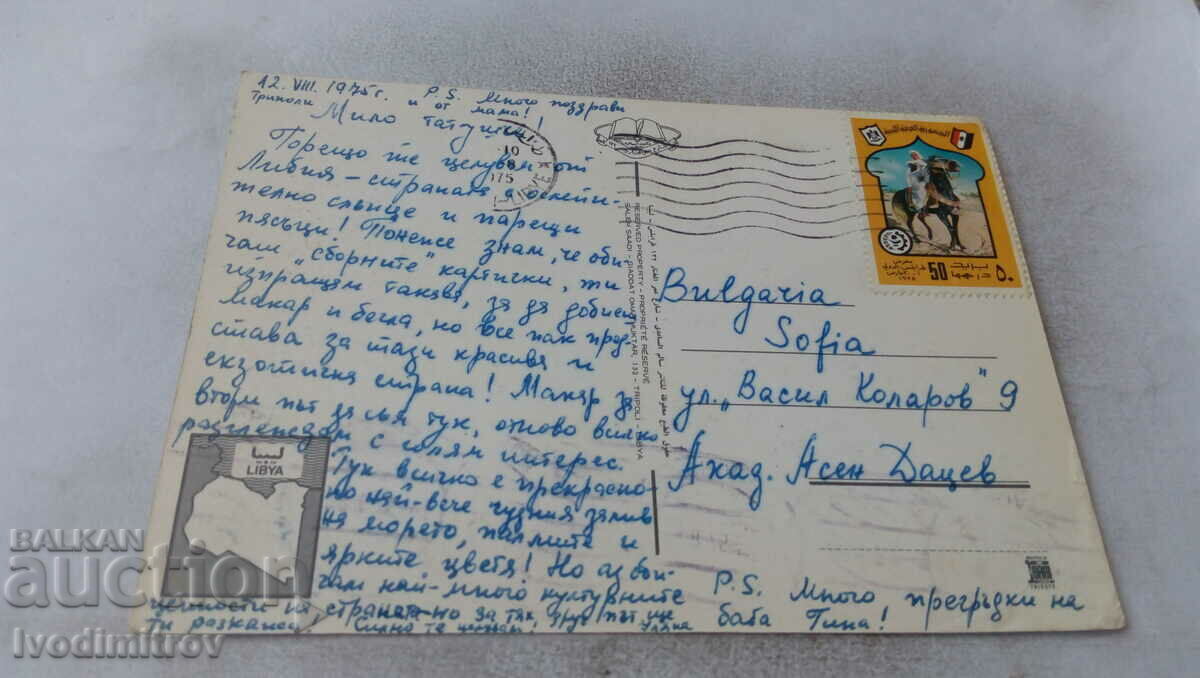 12. VIII. 1975 г.
Триполи
P.S. Много поздрави
и от мама!
Мило татушко!
Горещо те целувам от
Либия - страната с ослепи-
телно слънце и парещи
пясъци! Понеже знам, че оби-
чаш "сборните" картички, ти
изпращам такава, за да добиеш
макар и бегла, но все пак пред-
става за тази красива и
екзотична страна! Макар за
втори път да съм тук, отново всичко
разглеждам с голям интерес.
Тук всичко е прекрасно-
но най-вече чудния залив
на морето, палмите и
ярките цветя! Но аз оби-
чам най-много културните
ценности на страната-но за тях друг път ще
Ти разкажа! Силно те целувам!
P.S. Много прегръдки на
баба Гина!
Bulgaria
Sofia
ул. „Васил Коларов" 9
Акад. Асен Дацев
ليبيا
LIBYA
10
8
75
RESERVED PROPERTY - PROPRIÉTÉ RÉSERVÉ
SALEM SAADI - GIADDAT OMAR MUKTAR, 133 - TRIPOLI - LIBYA
50
٥٠
BALKAN
auction
Ivodimitrov